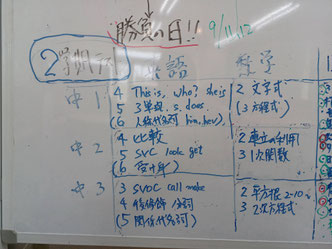 勝負の日!! 9/11,12
2学期
英語 数学
中1
4 This is, who? she is
5 3単現, s, does,
(6 人称代名詞 him, her)
2 文字式
(3 方程式)
中2
4 比較
5 SVC look get
(6
2 連立の利用
3 1次関数
中3
3 SVOC call make
4 後修飾 分詞
(5 関係代名詞)
2 平方根 2-10
3 2次方程式